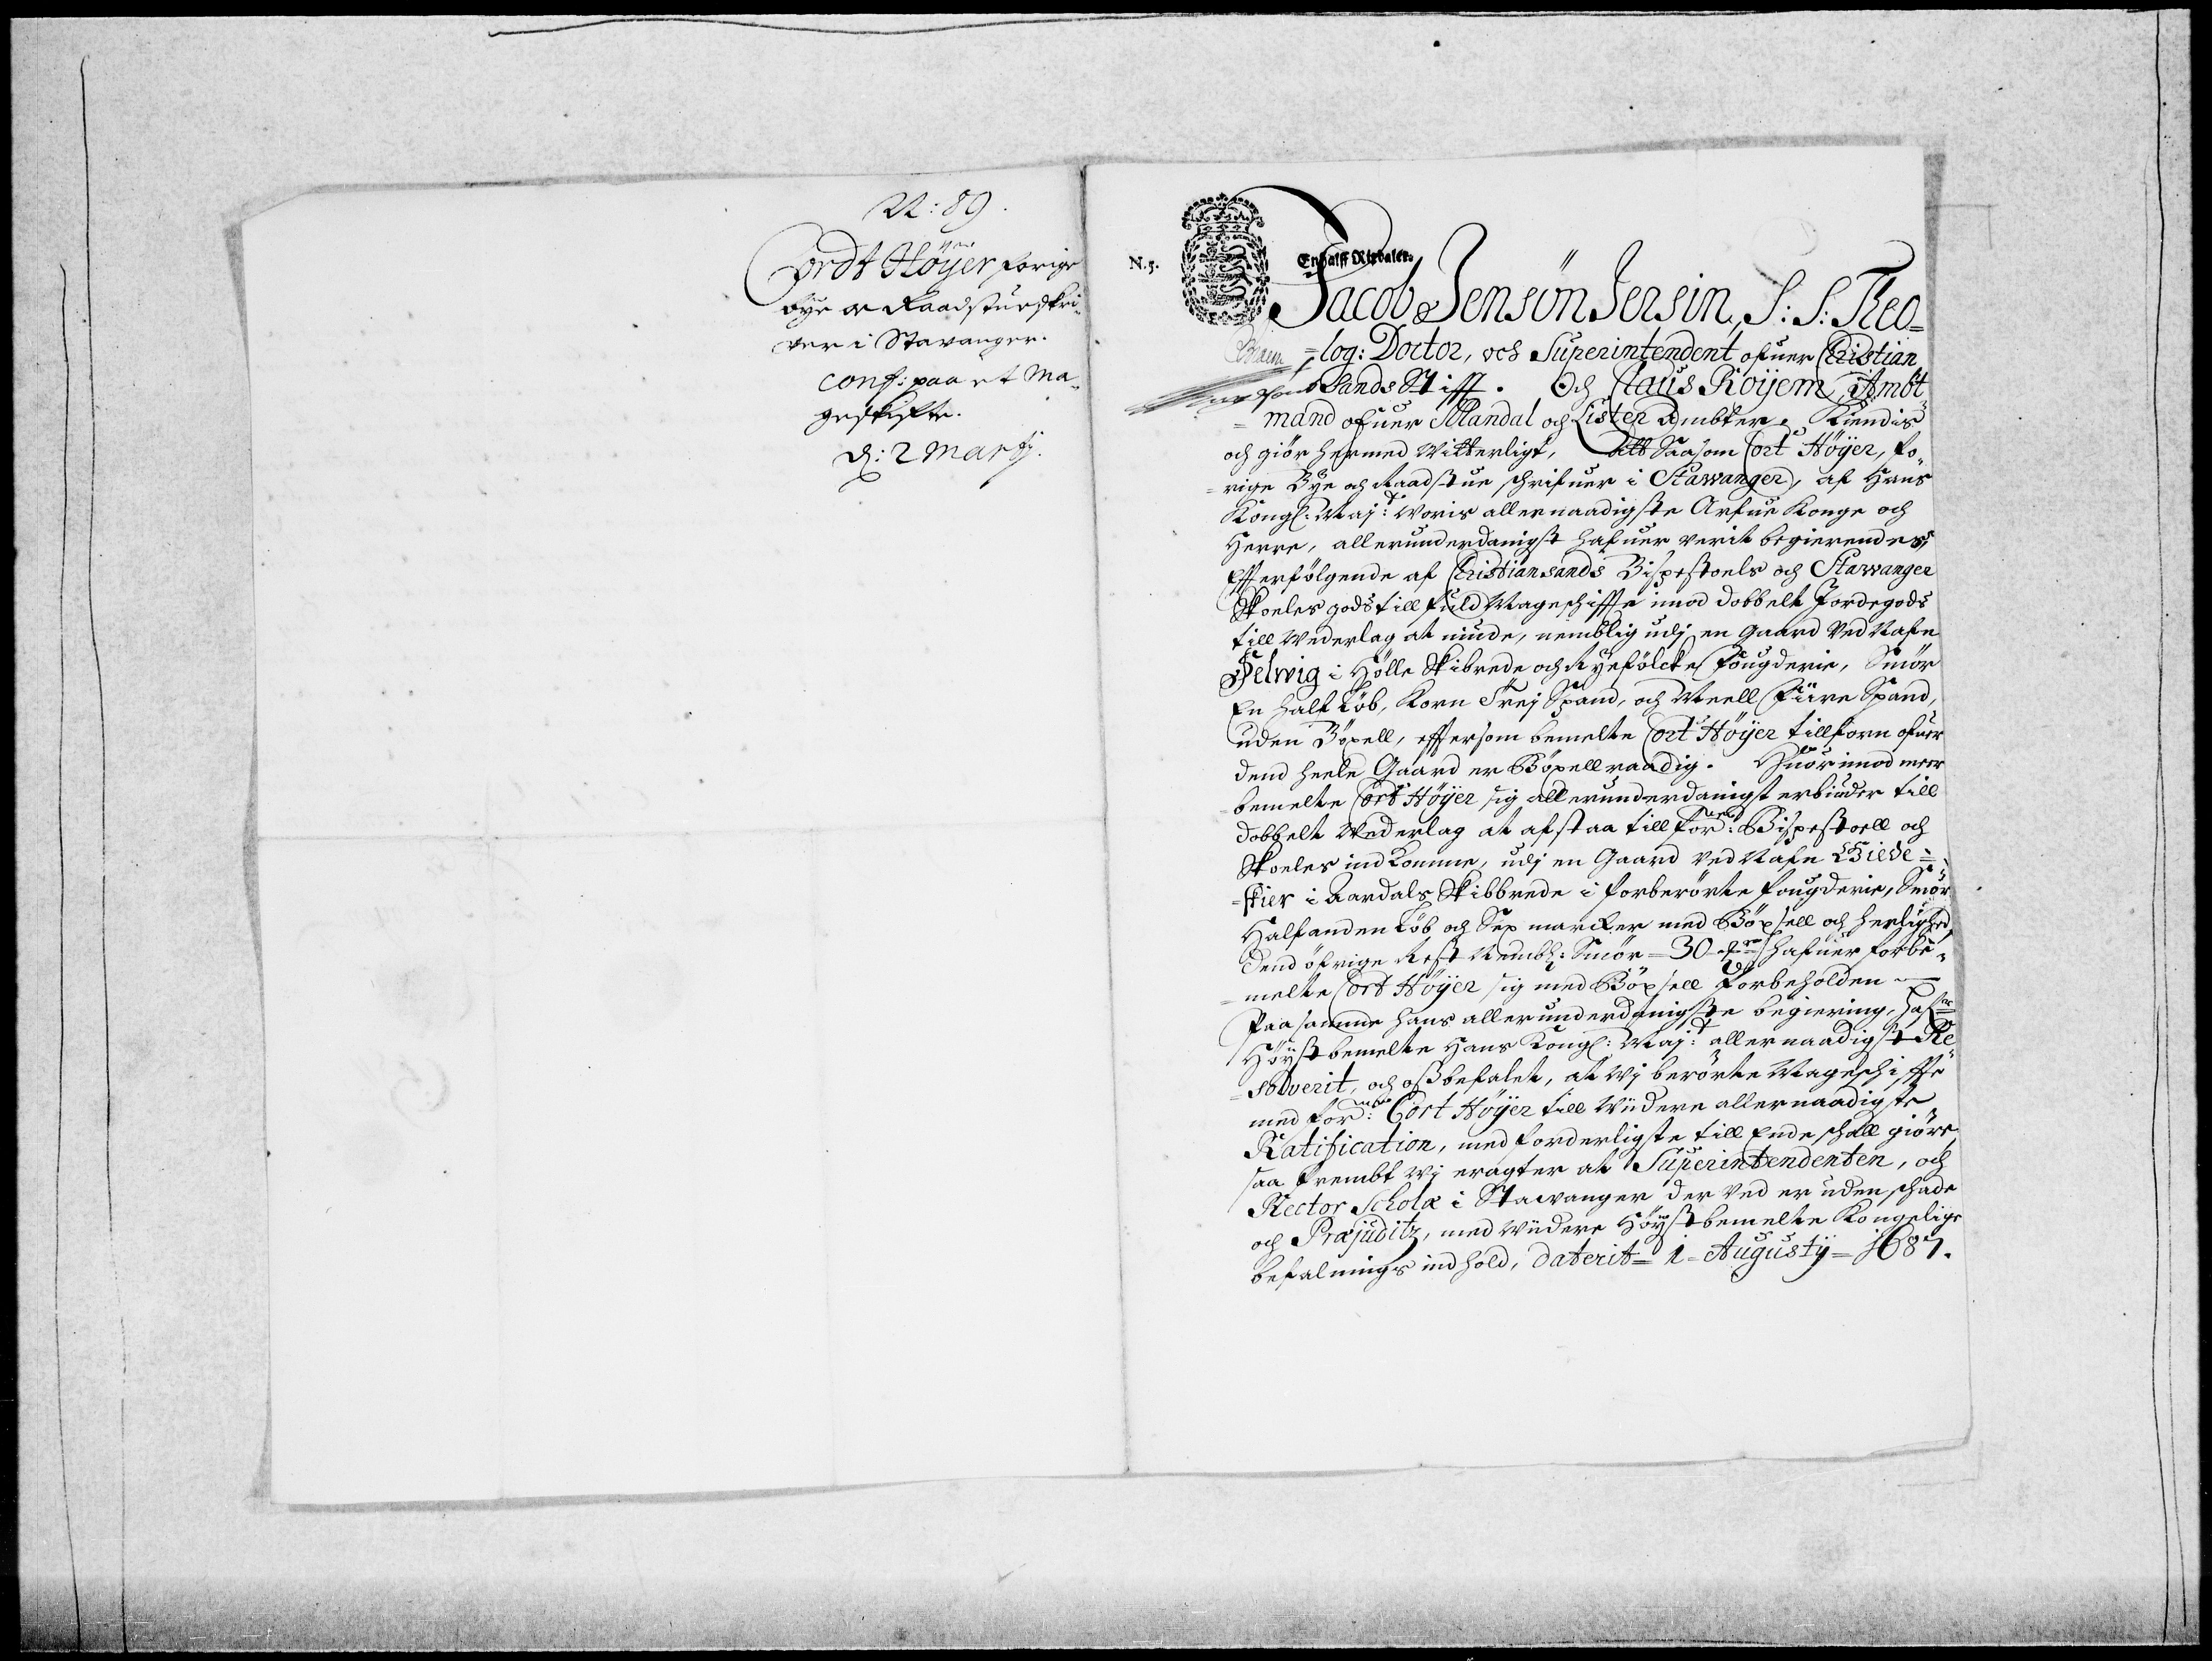 N: 89.
Cordt Höÿer forige
bÿe oc Raadstuedskri¬
ver i Stavanger.
conf: paa et Ma¬
geskifte.
d: 2 Martij.
N. 5.
En halff Rixdaler.
Jacob Jensön Jersin, S: S: Theo=
=log: Doctor, och Superintendent ofuer Christian
sands Stifft. Och Claus Röÿem, Ambt
=mand ofuer Mandal och Lister Ambter, Kiendis
och giör hermed Witterligt, Att Saasom Cort Höÿer, fo¬
=rige Bÿe och Raadstue schrifuer i Stawanger, af Hans
Kongl: Maj:t Woris allernaadigste Arfue Konge och
Herre, allerunderdanigst hafuer verit begierendes,
Efterfölgende af Christiansands Bispestoels och Stawanger
Skoeles gods till fuld Mageschiffte imod dobbelt Jordegods
till Wederlag at niude, nemblig udj en Gaard Ved Nafn
Selvig i Hölle Skibrede och Rÿefölcke Fougderie, Smör
En half Löb, Korn Trej Spand, och Meell Fiire Spand,
uden Böxell, eftersom bemelte Cort Höÿer tillforn ofuer
dend heele Gaard er Böxell raadig. Huorimod meer
=bemelte Cort Höÿer sig allerunderdanigst erbiuder till
dobbelt Wederlag at afstaa till for:ne Bispestoell och
Skoeles indkomme, udj en Gaard Ved Nafn Giede=
=skier i Aardals Skibbrede i forberörte fougderie, Smör
Halfanden Löb och Sex marcker med Böxsell och herlighed,
dend öfrige Rest Nembl: Smör =30= hafuer forbe¬
=melte Cort Höÿer sig med Böxsell forbeholden
Paa samme hans allerunderdanigste begiering, hafr
Höÿstbemelte Hans Kongl: Maj:t allernaadigst Re
=solverit, och oss befalet, at Wj berörte Mageschiffte
med for:ne Cort Höÿer till Wiidere allernaadigste
Ratification, med forderligste till Ende schall giöre,
saa frembt Wj eragter at Superintendenten, och
Rector Scholæ i Stawanger der Ved er uden schade
och Præjuditz, med Wiidere Höÿstbemelte Kongelige
befalnings indhold, Daterit= 1= Augustij= 1687.